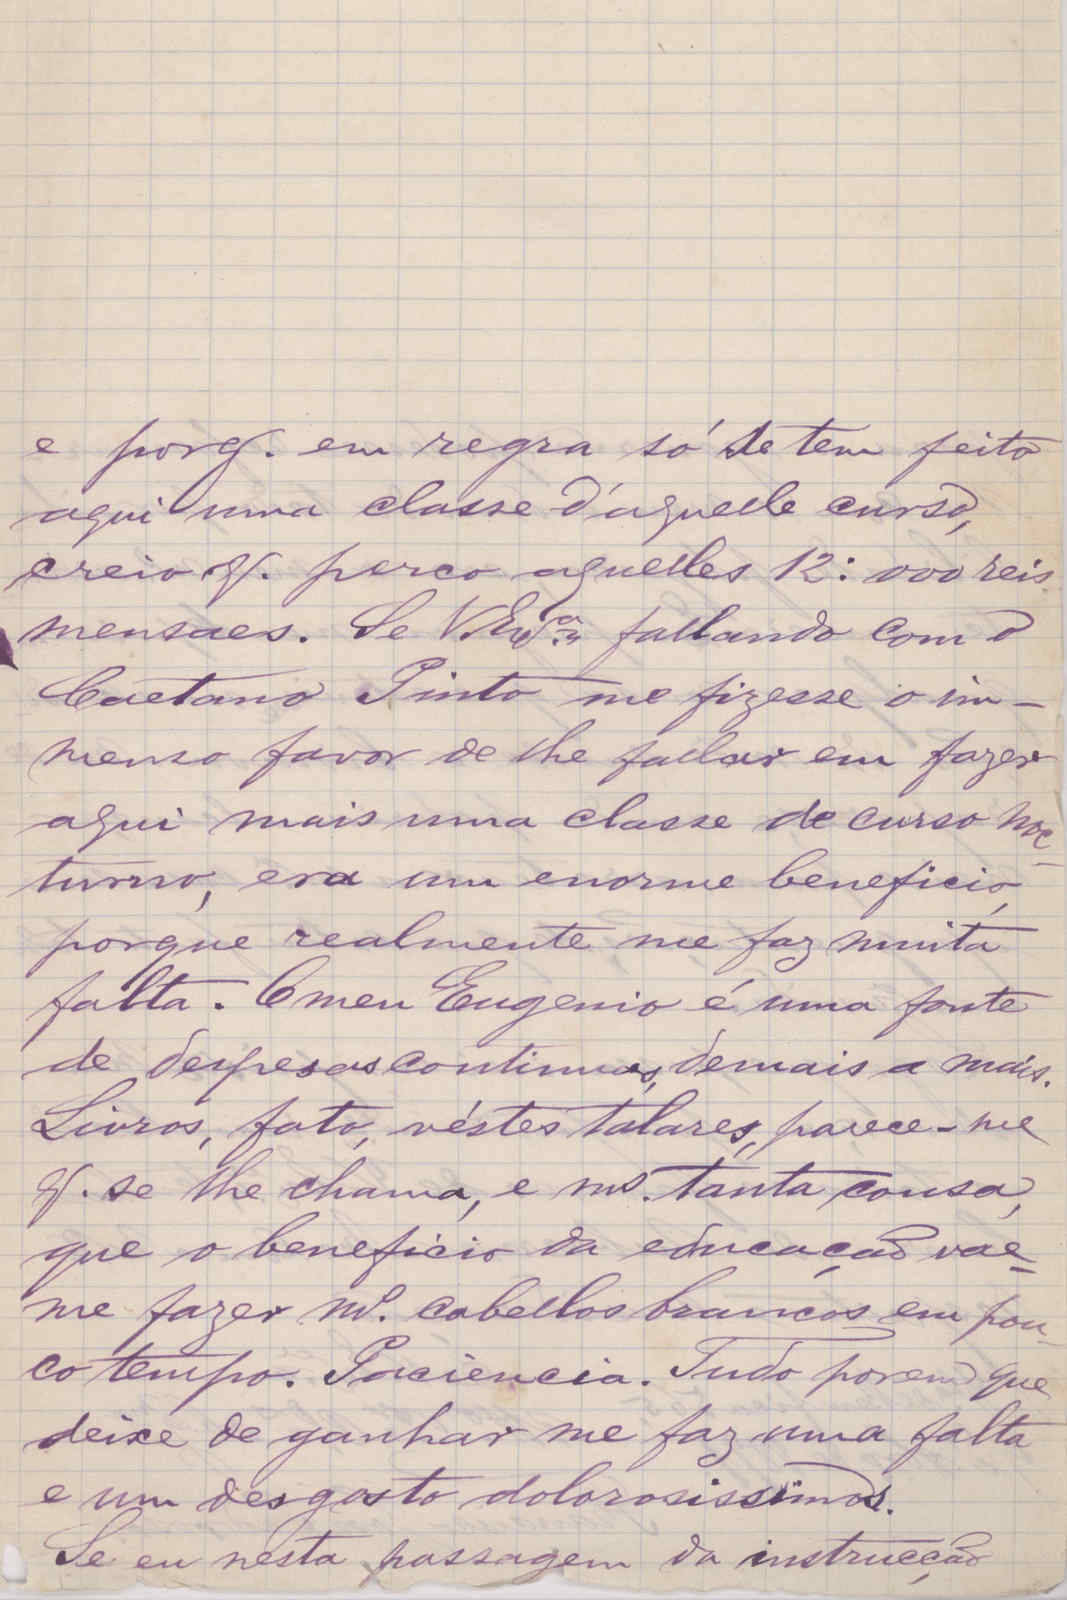 e porq. em regra só se tem feito
aqui uma classe d'aquelle curso,
creio q. perco aquelles 12:000 reis
mensaes. Se V. Ex.cia fallando com o
Caetano Pinto me fizesse o im-
menso favor de lhe fallar em fazer
aqui mais uma classe de curso noc-
turno, era um enorme beneficio,
porque realmente me faz muita
falta. O meu Eugenio é uma fonte
de despesas continuas, demais a mais.
Livros, fato, véstes talares, parece-me
q. se lhe chama, e m.ta tanta cousa,
que o beneficio da educação vae-
me fazer m.to cabellos brancos em pou-
co tempo. Paciencia. Tudo porem que
deixe de ganhar me faz uma falta
e um desgosto dolorosissimos.
Se eu nesta passagem da instrucção